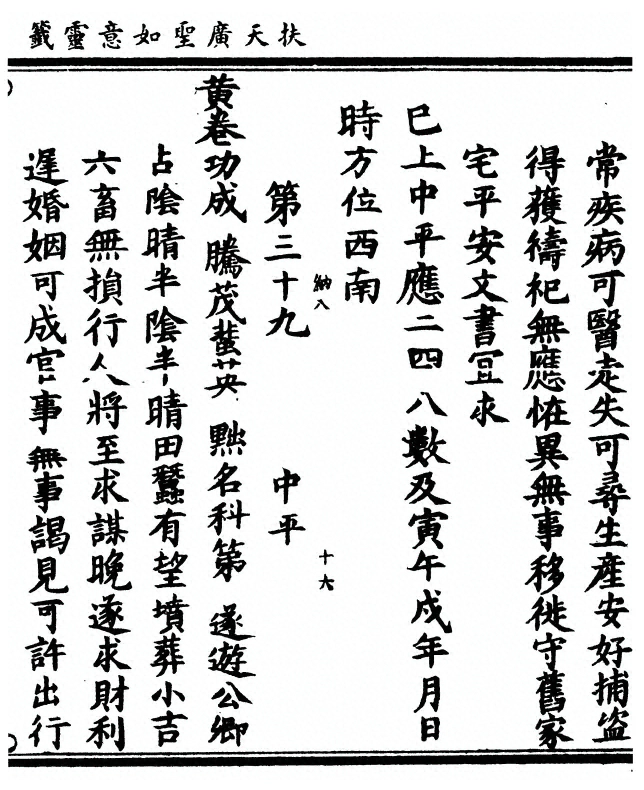 扶天廣聖如意靈籤
常疾病可醫走失可尋生產安好捕盜
得獲禱祀無應怪異無事移徙守舊家
宅平安文書宜求
已上中平應二四八數及寅午戌年月日
時方位西南
納八
十六
第三十九 中平
黃卷功成 騰茂蜚英 點名科第 遂遊公卿
占陰晴半陰半晴田蠶有望墳葬小吉
六畜無損行人將至求謀晚遂求財利
遲婚姻可成官事無事謁見可許出行